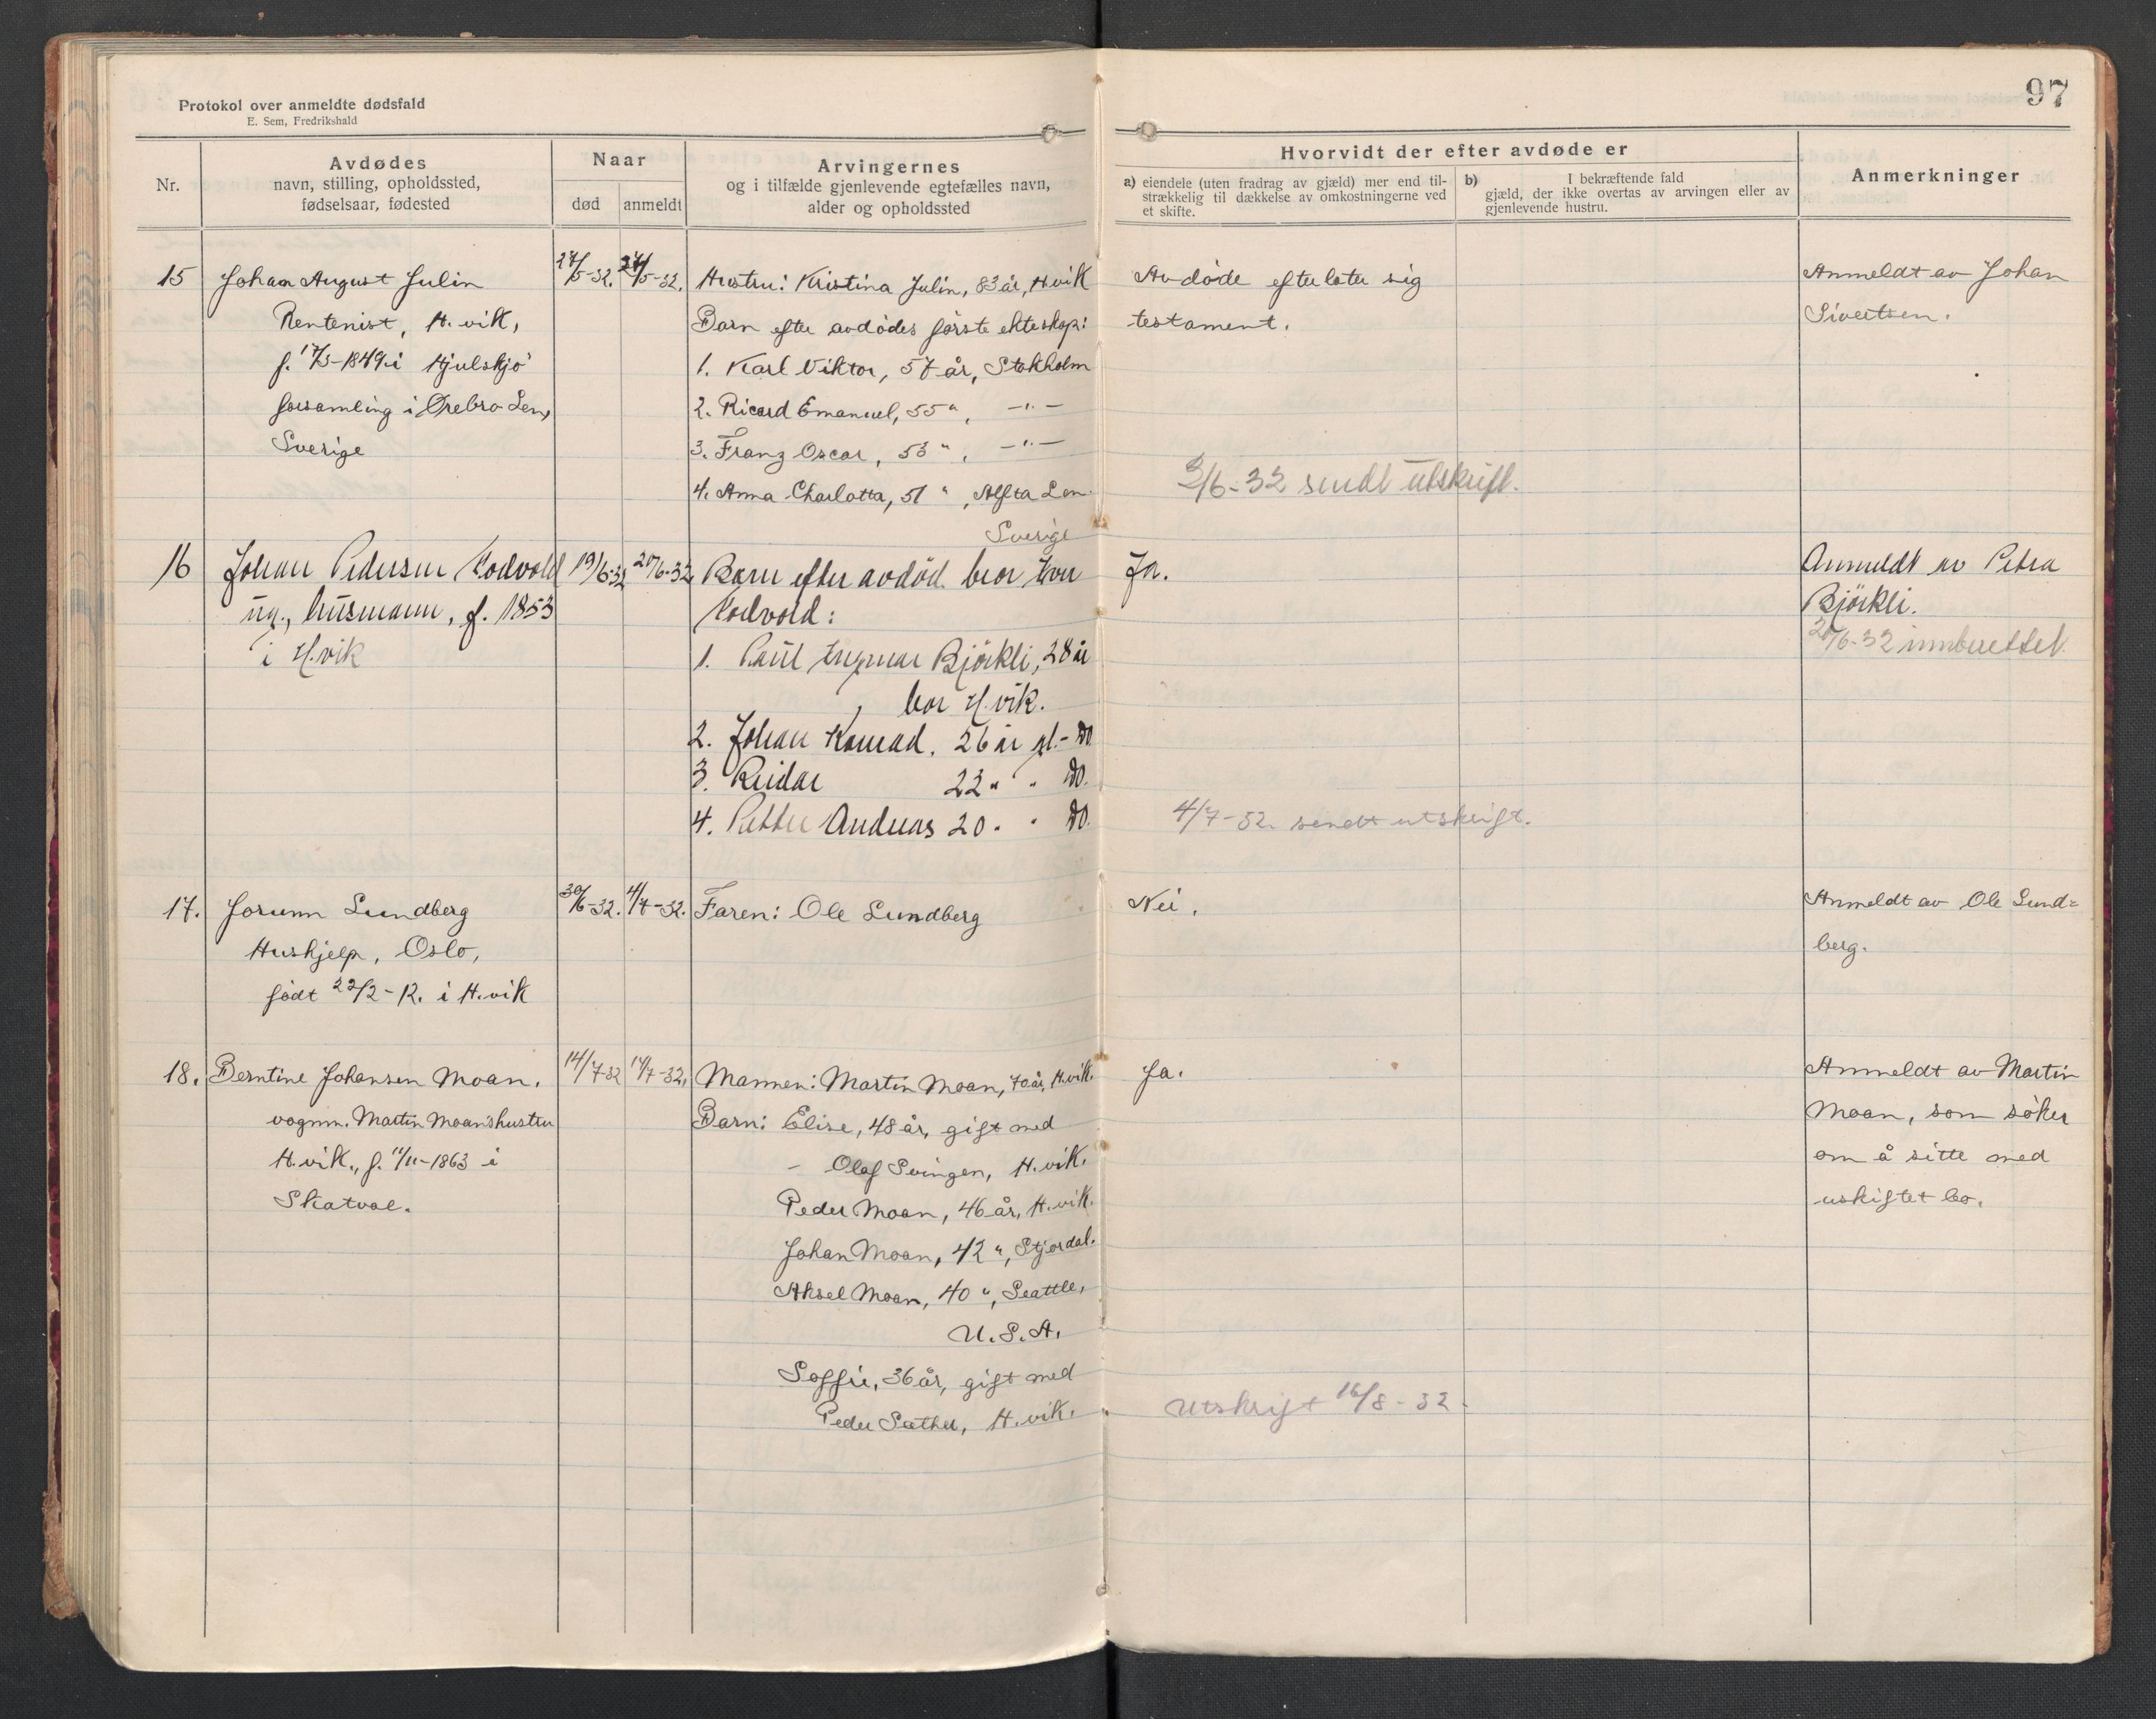 Protokol over anmeldte dødsfald
E. Sem, Fredrikshald
97
Nr.
Avdødes
navn, stilling, opholdssted,
fødselsaar, fødested
Naar
død
anmeldt
Arvingernes
og i tilfælde gjenlevende egtefælles navn,
alder og opholdssted
Hvorvidt der efter avdøde er
a) eiendele (uten fradrag av gjæld) mer end til-
strækkelig til dækkelse av omkostningerne ved
et skifte.
b) I bekræftende fald
gjæld, der ikke overtas av arvingen eller av
gjenlevende hustru.
Anmerkninger
15
Johan August Julin
Rentenist, H.vik,
f. 17/3-1849 i Hjulskjö
forsamling i Ørebro Len,
Sverige
24/5-32.
24/5-32.
Hustru: Kristina Julin, 83 år, H.vik
Barn efter avdødes første ekteskap:
1. Karl Viktor, 57 år, Stokholm
2. Ricard Emanuel, 55 ", -"-
3. Franz Oscar, 53 ", -"-
4. Anna Charlotta, 51 ", Alfta Len
Sverige
Avdøde efterlater sig
testament.
3/6-32 sendt utskrift.
Anmeldt av Johan
Sivertsen.
16
Johan Pedersen Hodvold
ug., husmann, f. 1853
i H.vik
19/6-32
20/6-32
Barn efter avdød. bror Iver
Hodvold:
1. Paul Ingmar Björkli, 28 år
bor H.vik.
2. Johan Konrad. 26 år pl.- Do
3. Reidar 22 " " Do.
4. Petter Andreas 20 " " Do.
Ja.
4/7-32. sendt utskrift.
Anmeldt av Petra
Björkli.
20/6-32 innberettet.
17.
Jorunn Lundberg
Hushjelp, Oslo,
født 22/2-12. i H.vik
30/6-32.
4/7-32.
Faren: Ole Lundberg
Nei.
Anmeldt av Ole Lund=
berg.
18.
Berntine Johansen Moan.
vognm. Martin Moan's hustru
H.vik., f. 11/11-1863 i
Skatval.
14/7-32
14/7-32.
Mannen: Martin Moan, 70 år, H.vik.
Barn: Elise, 48 år, gift med
- Olaf Svingen, H.vik.
Peder Moan, 46 år, H.vik.
Johan Moan, 42 ", Stjørdal.
Aksel Moan, 40 ", Seattle,
U.S.A.
Soffie, 36 år, gift med
Peder Sæther, H.vik.
Ja.
Utskrift 16/8-32.
Anmeldt av Martin
Moan, som søker
om å sitte med
uskiftet bo.